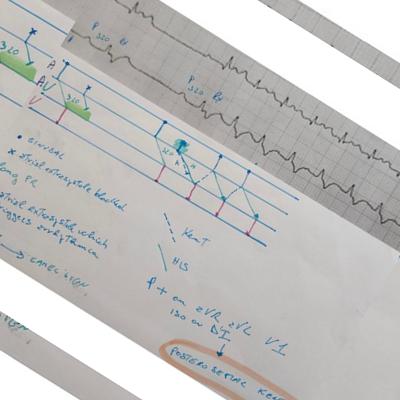 P P6
320
P P6
320
320
A
AV
V
320
320
• SINUSAL
x atrial extrasystole blocked
long PR
atrial extrasystole which
triggers arrhythmia
→ CAMEL SIGN
KENT
HIS
P + en aVR aVL V1
iso en DI
POSTEROSEPTAL KENT